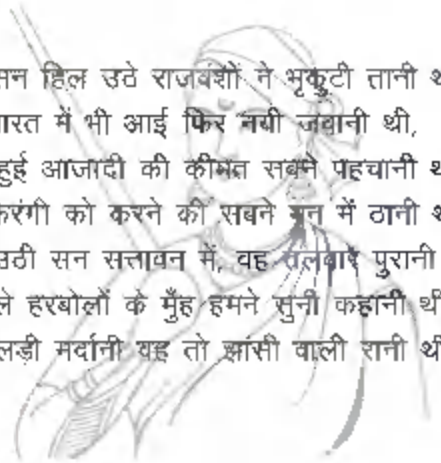 सन हिल उठे राजवंशों ने भृकुटी तानी थ
ारत में भी आई फिर नयी जवानी थी,
हुई आजादी की कीमत सबने पहचानी थ
फिरंगी को करने की सबने मन में ठानी थ
उठी सन सत्तावन में, वह तलवार पुरानी
ले हरबोलों के मुँह हमने सुनी कहानी थी
लड़ी मर्दानी वह तो झांसी वाली रानी थी